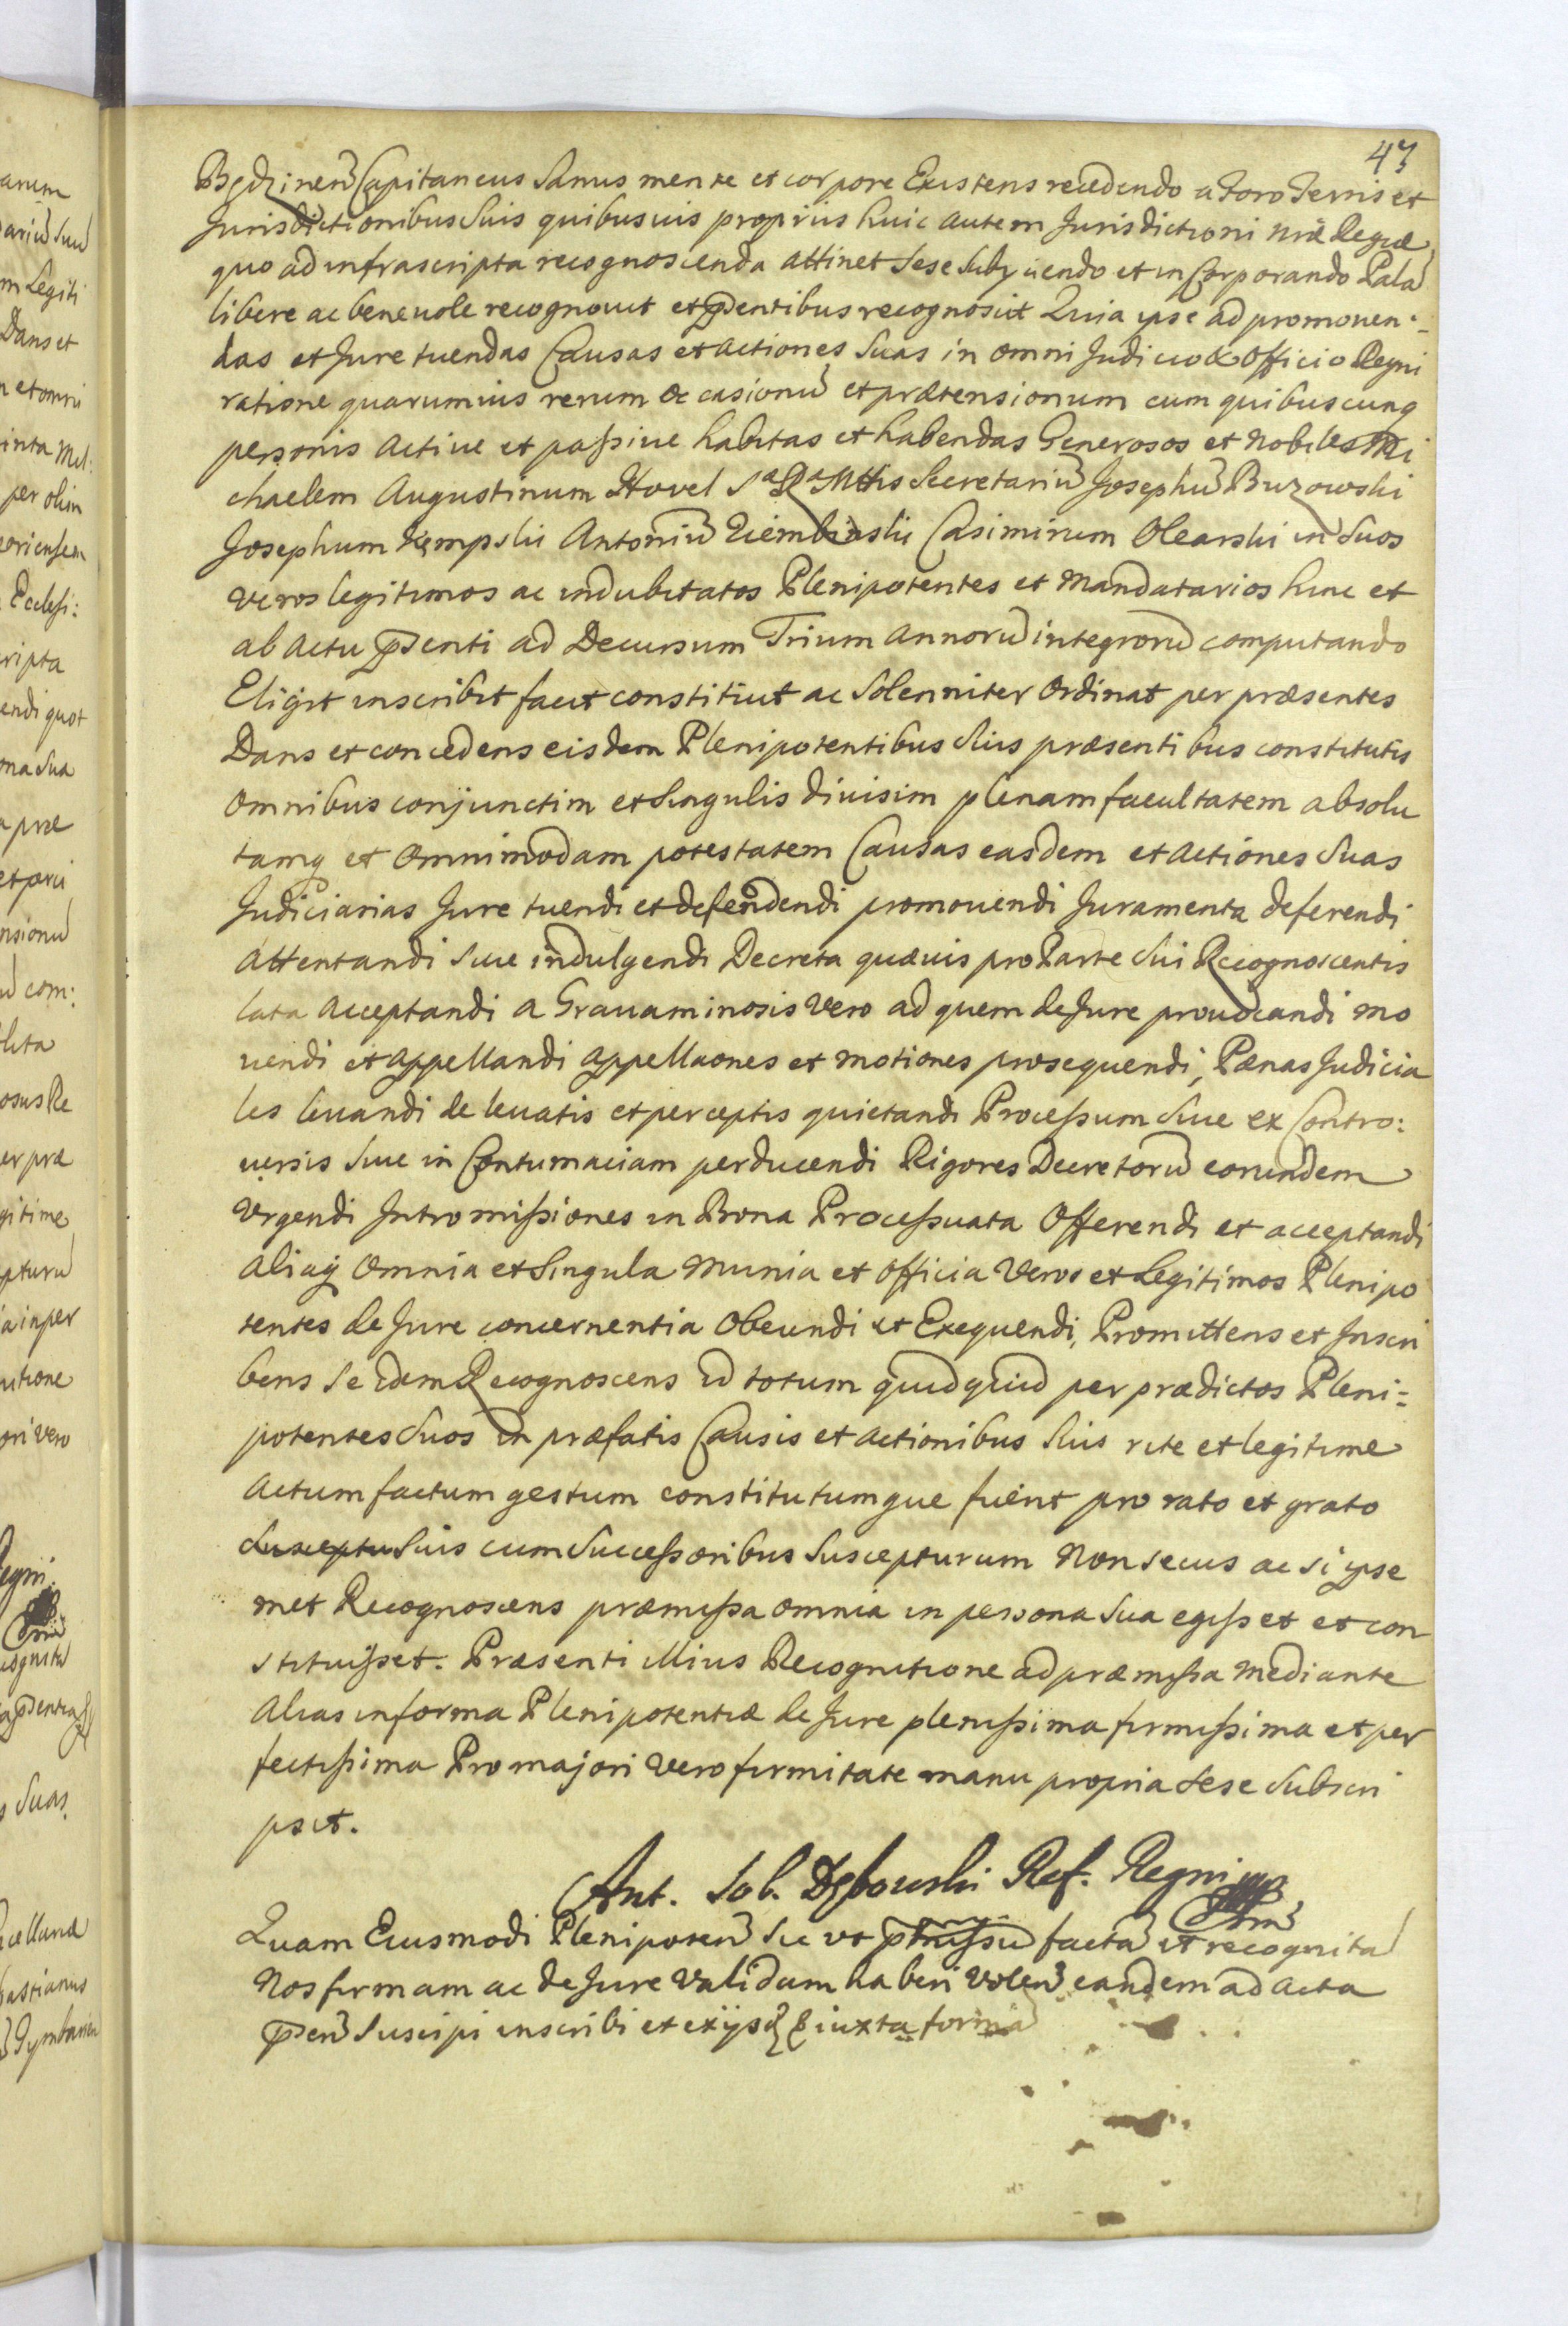 47
Będzinen Capitaneus Sanus mente et corpore Existens recedendo a Foro Terris et
Jurisdictionibus Suis quibusuis proprijs huic autem Jurisdictioni nrae Regiae
quo ad infrascripta recognoscenda attinet sese Subijciendo et incorporando Pala
libere ac beneuole recognouit et pñsentibus recognoscit Quia ipse ad promouen:
das et Jure tuendas Causas et actiones Suas in omni Judicio & Officio Regni
ratione quarumuis rerum occasionu et praetensionum cum quibuscunq
personis actiue et passiue habitas et habendas Generosos et Nobiles Mi
chaelem Augustinum Hovel Sae Rae Mttis Secretariu Josephu Buzowski
Josephum Kępski Antoniu Ziembinski Casimirum Olearski in Suos
veros legitimos ac indubitatos Plenipotentes et Mandatarios hinc et
ab actu pñsenti ad Decursum Trium annoru integroru computando
Eligit inscribit facit constituit ac Solenniter Ordinat per praesentes
Dans et concedens eisdem Plenipotentibus Suis praesentibus constitutis
omnibus conjunctim et Singulis diuisim plenam facultatem absolu
tamq et omnimodam potestatem Causas easdem et actiones Suas
Judiciarias Jure tuendi et defendendi promouendi Juramenta deferendi
attentandi Siue indulgendi Decreta quaeuis pro Parte Sui Recognoscentis
lata acceptandi a Grauaminosis Vero ad quem de Jure prouocandi mo
uendi et appellandi appellaones et motiones prosequendi, Paenas Judicia
les leuandi de leuatis et perceptis quietandi Processum Siue ex Contro:
uersis Siue in Contumaciam perducendi Rigores Decretoru eorundem
Vrgendi Intromissiones in Bona Processuata Offerendi et acceptandi
aliaq Omnia et Singula Munia et officia Veros et Legitimos Plenipo
tentes de Jure concernentia Obeundi et Exequendi, Promittens et Inscri
bens se idem Recognoscens id totum quidquid per praedictos Pleni=
potentes Suos in praefatis Causis et actionibus Suis rite et legitime
actum factum gestum constitutumque fuerit pro rato et grato
Susceptu Suis cum Successoribus Suscepturum Non secus ac si ipse
met Recognoscens praemissa omnia in persona Sua egisset et con
stituisset. Praesenti illius Recognitione ad praemissa mediante
alias in forma Plenipotentiae de Jure plenissima firmissima et per
fectissima Pro majori Vero firmitate manu propria sese Subscri
psit.
Ant. Sob. Dębowski Ref. Regni mp
Quam Eiusmodi Plenipoten sic ut facta et recognita
Nos firmam ac de Jure Validam haberi Volen eandem ad acta
pñsen Suscipi inscribi et iuxta forma